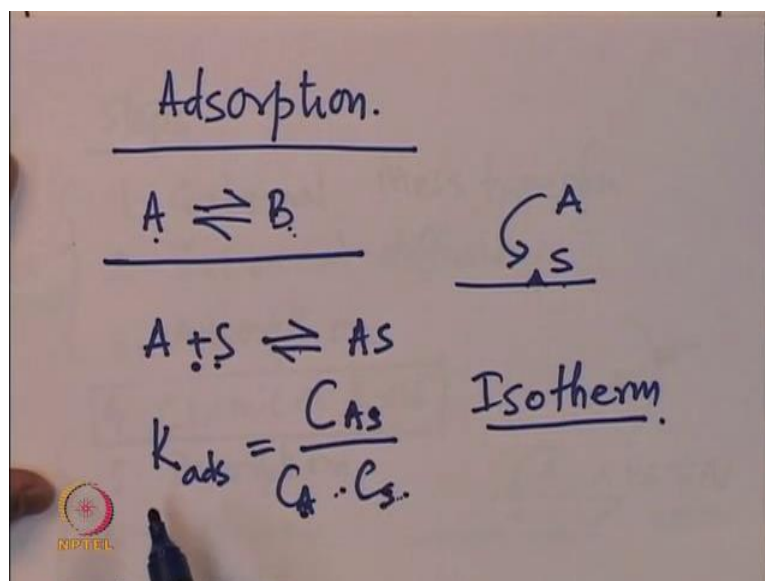 Adsorption.
A ⇌ B
A
S
A + S ⇌ AS
Isotherm.
K_ads = C_AS / C_A . C_S
NPTEL